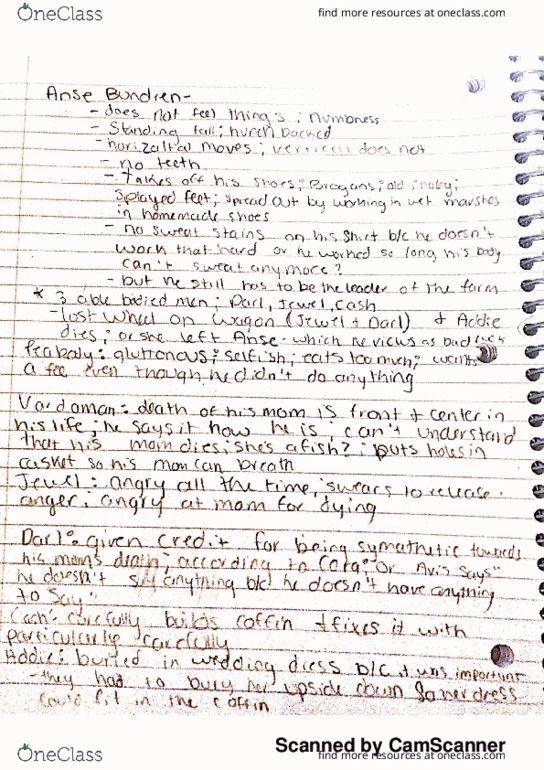 OneClass
find more resources at oneclass.com
Anse Bundren-
- does not feel things; numbness
- Standing tall; hunch backed
- horizaltal moves; verticell does not
- no teeth
- Takes off his shoes; Brogans; old
splayed feet; spread out by working in wet marshes
in homemade shoes
- no sweat stains on his shirt b/c he doesn't
work that hard or he worked so long his body
can't sweat anymore?
- but he still has to be the leader of the farm
* 3 able bodied men; Darl, Jewel, Cash
- lost wheel on wagon (Jewel + Darl) + Addie
dies; or she left Anse - which he views as bad luck
Peabody: glutonous; selfish; eats too much; wants
a fee even though he didn't do anything
Vardaman: death of his mom is front + center in
his life; he says it how he is; can't understand
that his mom dies; she's a fish?; puts holes in
casket so his mom can breath
Jewel: angry all the time, swears to release
anger; angry at mom for dying
Darl: given credit for being symathetic towards
his mom's death; according to Cora: or
he doesn't say anything b/c he doesn't have anything
to say"
Cash: carefully builds coffin + fixes it with
particularly carefully
Addie: buried in wedding dress b/c it was important
- they had to bury her upside down so her dress
could fit in the coffin
Scanned by CamScanner
OneClass
find more resources at oneclass.com